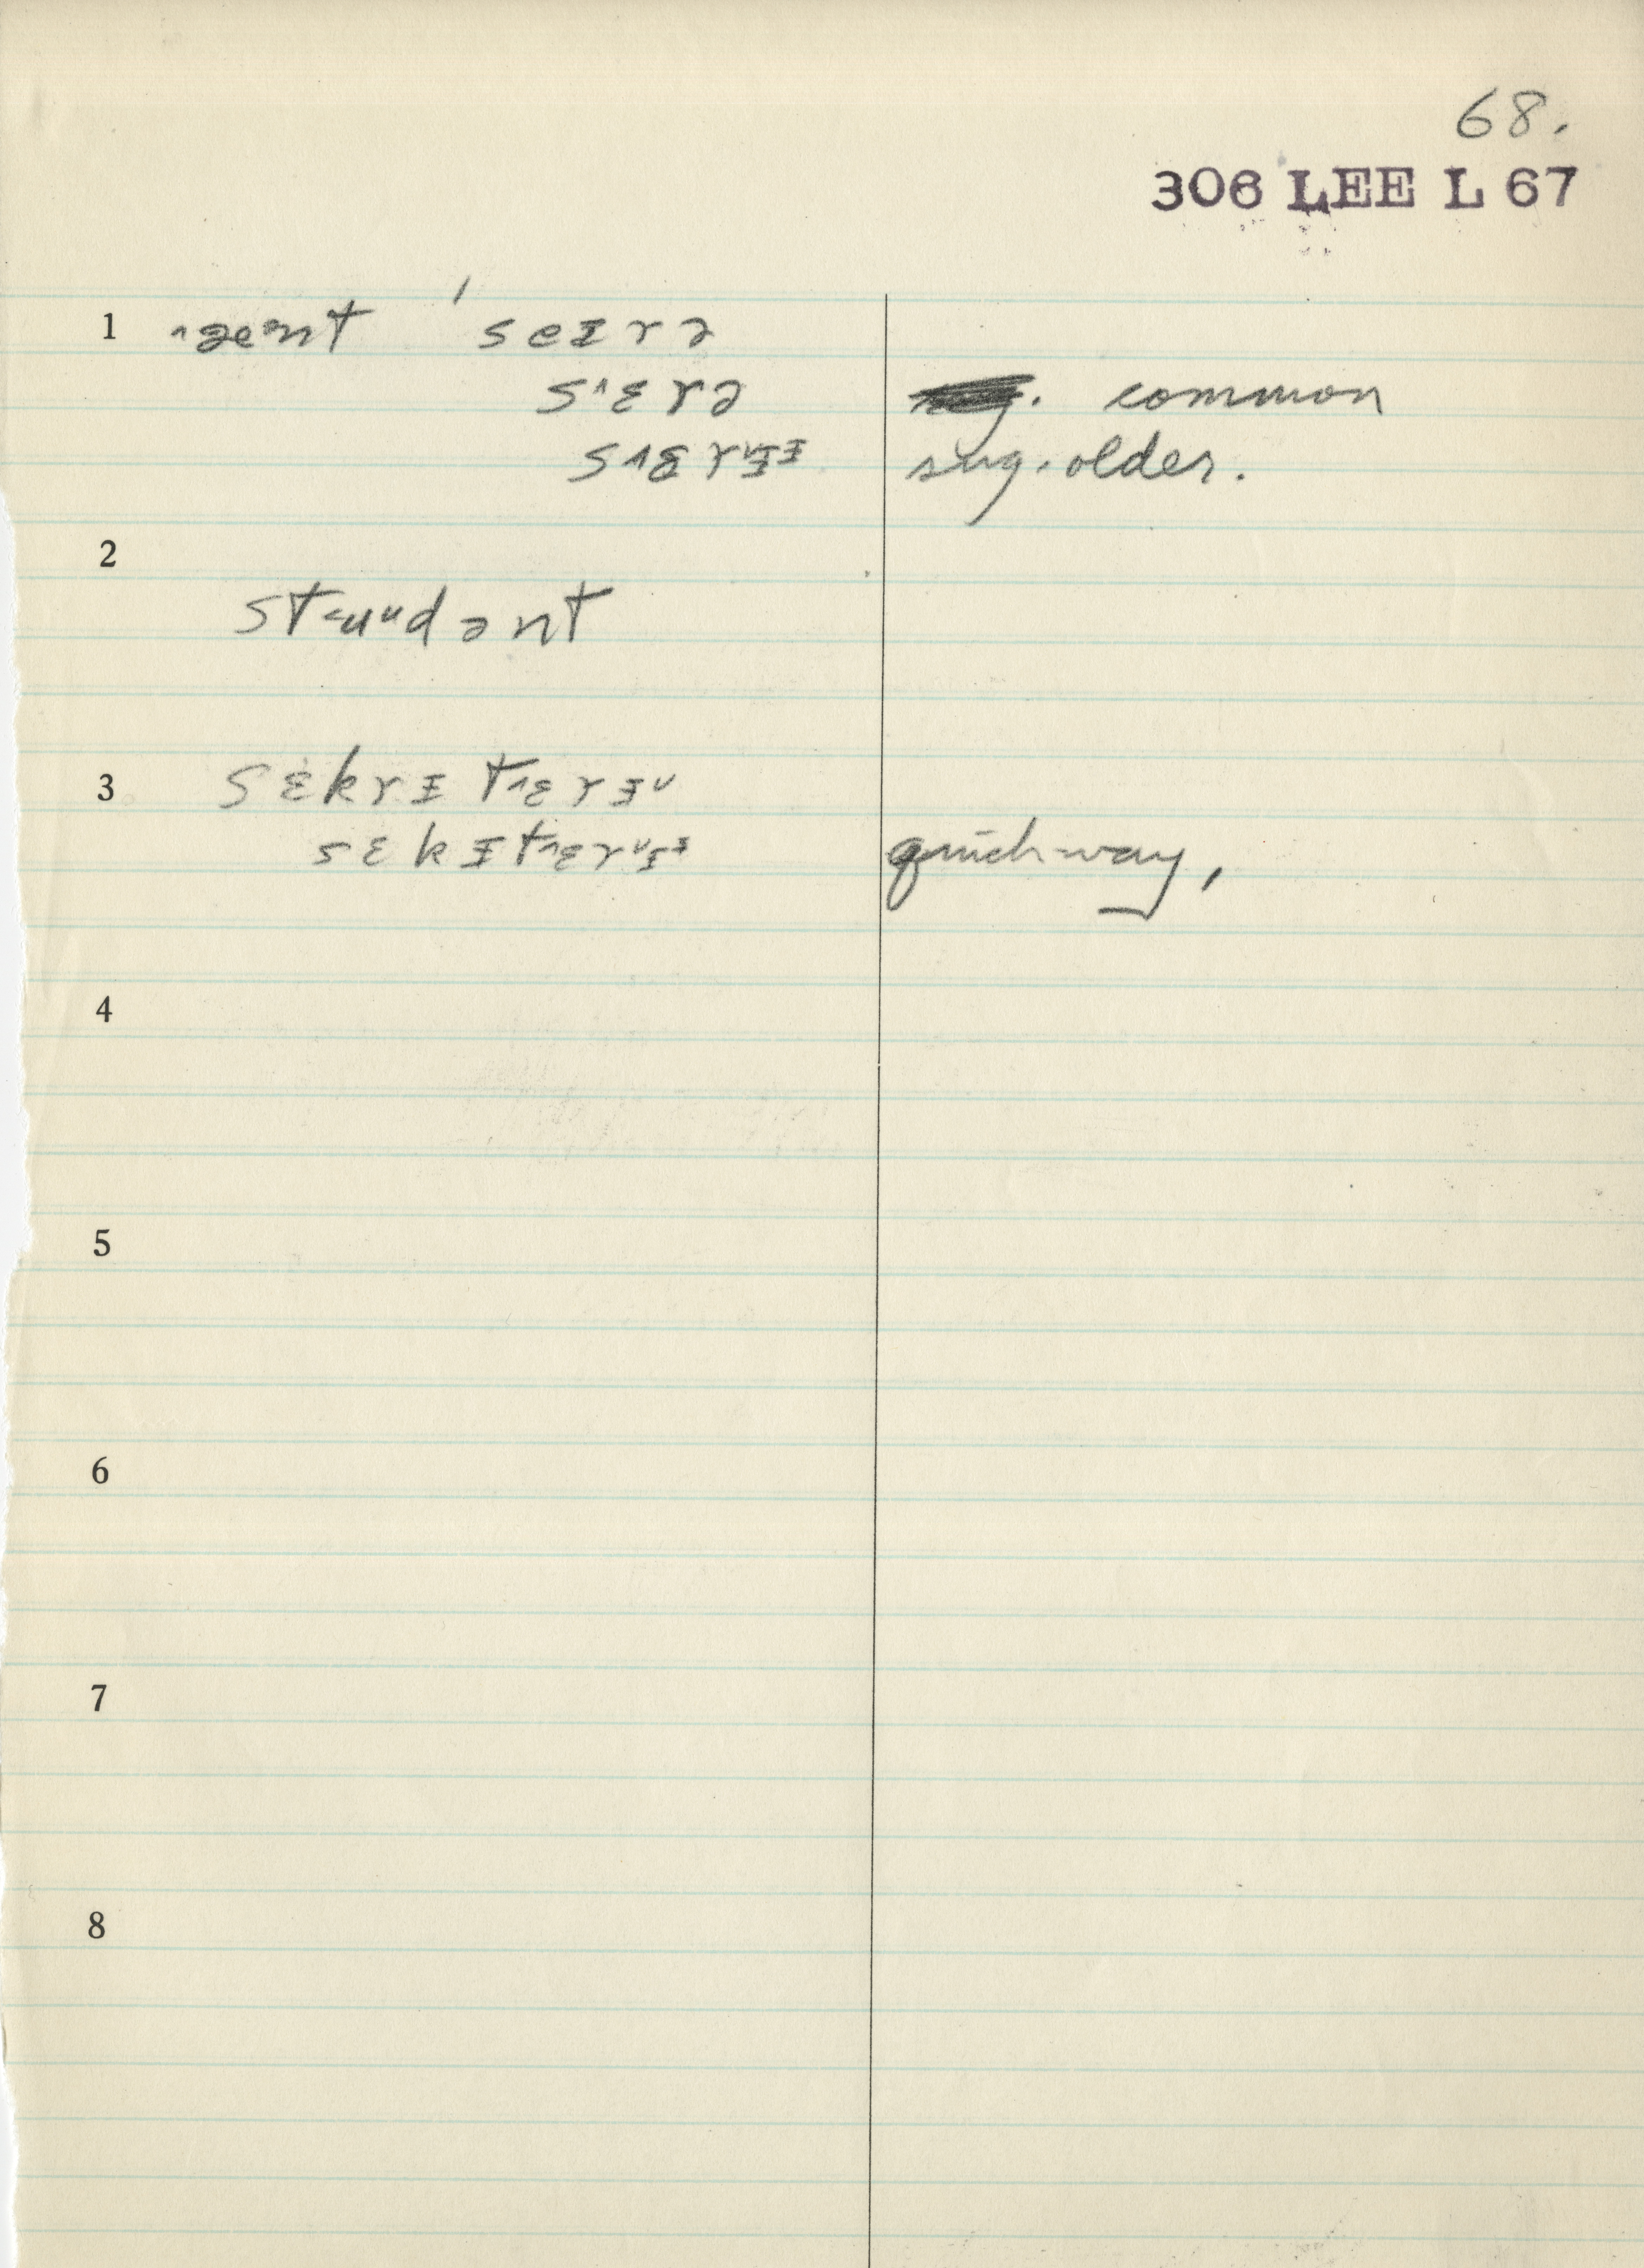 68.
306 LEE L 67
1 ˄æənt ' seɪrə
s˄ɛrə common
s˄ɛrᵿɪ sug. older.
2
st˂uᵘdənt
3 sɛkrɪt˄ɛrɪ˅
sɛkɪt˄ɛr˅ɪᶦ quick way,
4
5
6
7
8